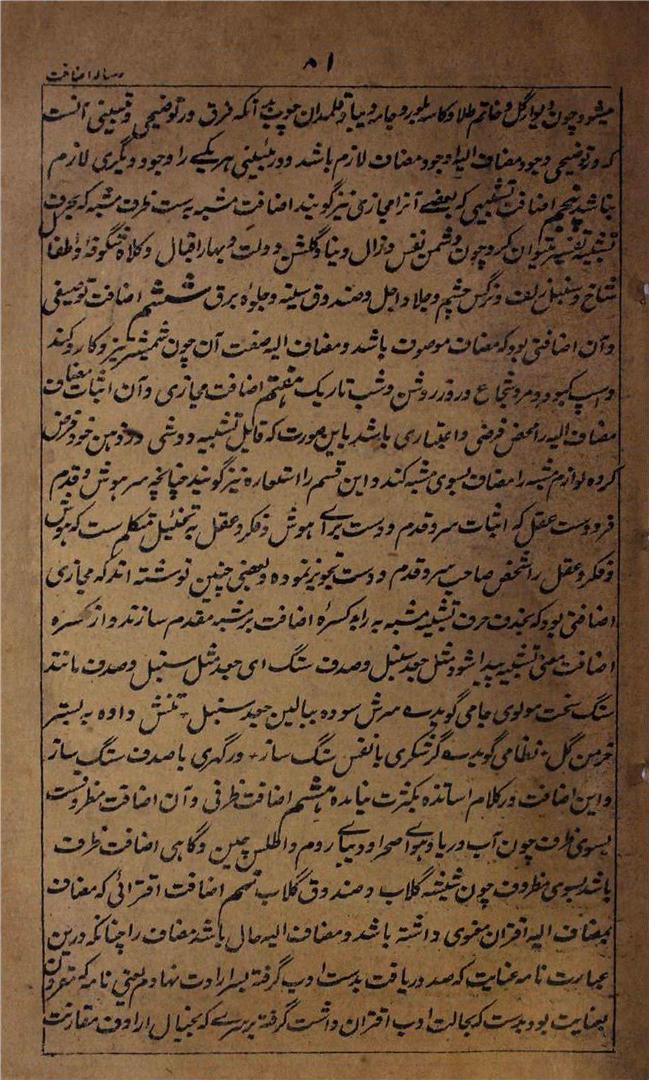 ۸۱
رساله اضافت
میشود چون دیوار گل و خاتم طلا و کاسه بلور و جامه دیبا و قلمدان چوب بدانکه فرق در توضیحی و تبیینی آنست
که در توضیحی وجود مضاف الیه را وجود مضاف لازم باشد و در تبیینی هر یکی را وجود دیگری لازم
نباشد پنجم اضافت تشبیهی که بعضی آنرا مجازی نیز گویند اضافت مشبه به ست بطرف مشبه که بحرف
تشبیه تفسیر توان کرد چون دشمن نفس و زال دنیا و گلشن دولت و بهار اقبال و کلاه شگوفه و طفل
شاخ و سنبل زلف و نرگس چشم و جلاد اجل و صندوق سینه و جلوه برق ششم اضافت توصیفی
و آن اضافتی بود که مضاف موصوف باشد و مضاف الیه صفت آن چون شمشیر تیز و کارد کند
و اسپ کبود و مرد شجاع و روز روشن و شب تاریک هفتم اضافت مجازی و آن اثبات مضاف
مضاف الیه را محض فرضی و اعتباری باشد باین صورت که قایل تشبیه دوشی در ذهن خود فرض
کرده لوازم مشبه را مضاف بسوی مشبه کند و این قسم را استعاره نیز گویند چنانچه سر هوش و قدم
فکر و دست عقل که اثبات سر و قدم و دست برای هوش و فکر و عقل به تخئیل متکلم ست که هوش
و فکر و عقل را شخص صاحب سر و قدم و دست تجویز نموده و بعضی چنین نوشته اند که مجازی
اضافتی بود که بحذف حرف تشبیه مشبه به را بکسره اضافت بر مشبه مقدم سازند و از کسره
اضافت معنی تشبیه پیدا شود مثل جعد سنبل و صدف سنگ ای جعد مثل سنبل و صدف مانند
سنگ سخت مولوی جامی گوید سرش سوده ببالین جعد سنبل تنش داده به بستر
خرمن گل نظامی گوید گر شکری با نفس تنگ ساز ور گهری با صدف سنگ ساز
و این اضافت در کلام اساتذه بکثرت نیامده هشتم اضافت ظرفی و آن اضافت مظروفست
بسوی ظرف چون آب دریا و هوای صحرا و دیبای روم و اطلس چین و گاهی اضافت ظرف
باشد بسوی مظروف چون شیشه گلاب و صندوق گلاب نهم اضافت اقترانی که مضاف
بمضاف الیه اقتران معنوی داشته باشد و مضاف الیه حال باشد مضاف را چنانکه درین
عبارت نامه عنایت که صدر یافت بدست ادب گرفته بسر ارادت نهادم یعنی نامه که مقرون
بعنایت بود بدست که بحالت ادب اقتران داشت گرفته بر سری که بخیال ارادت مقارنت